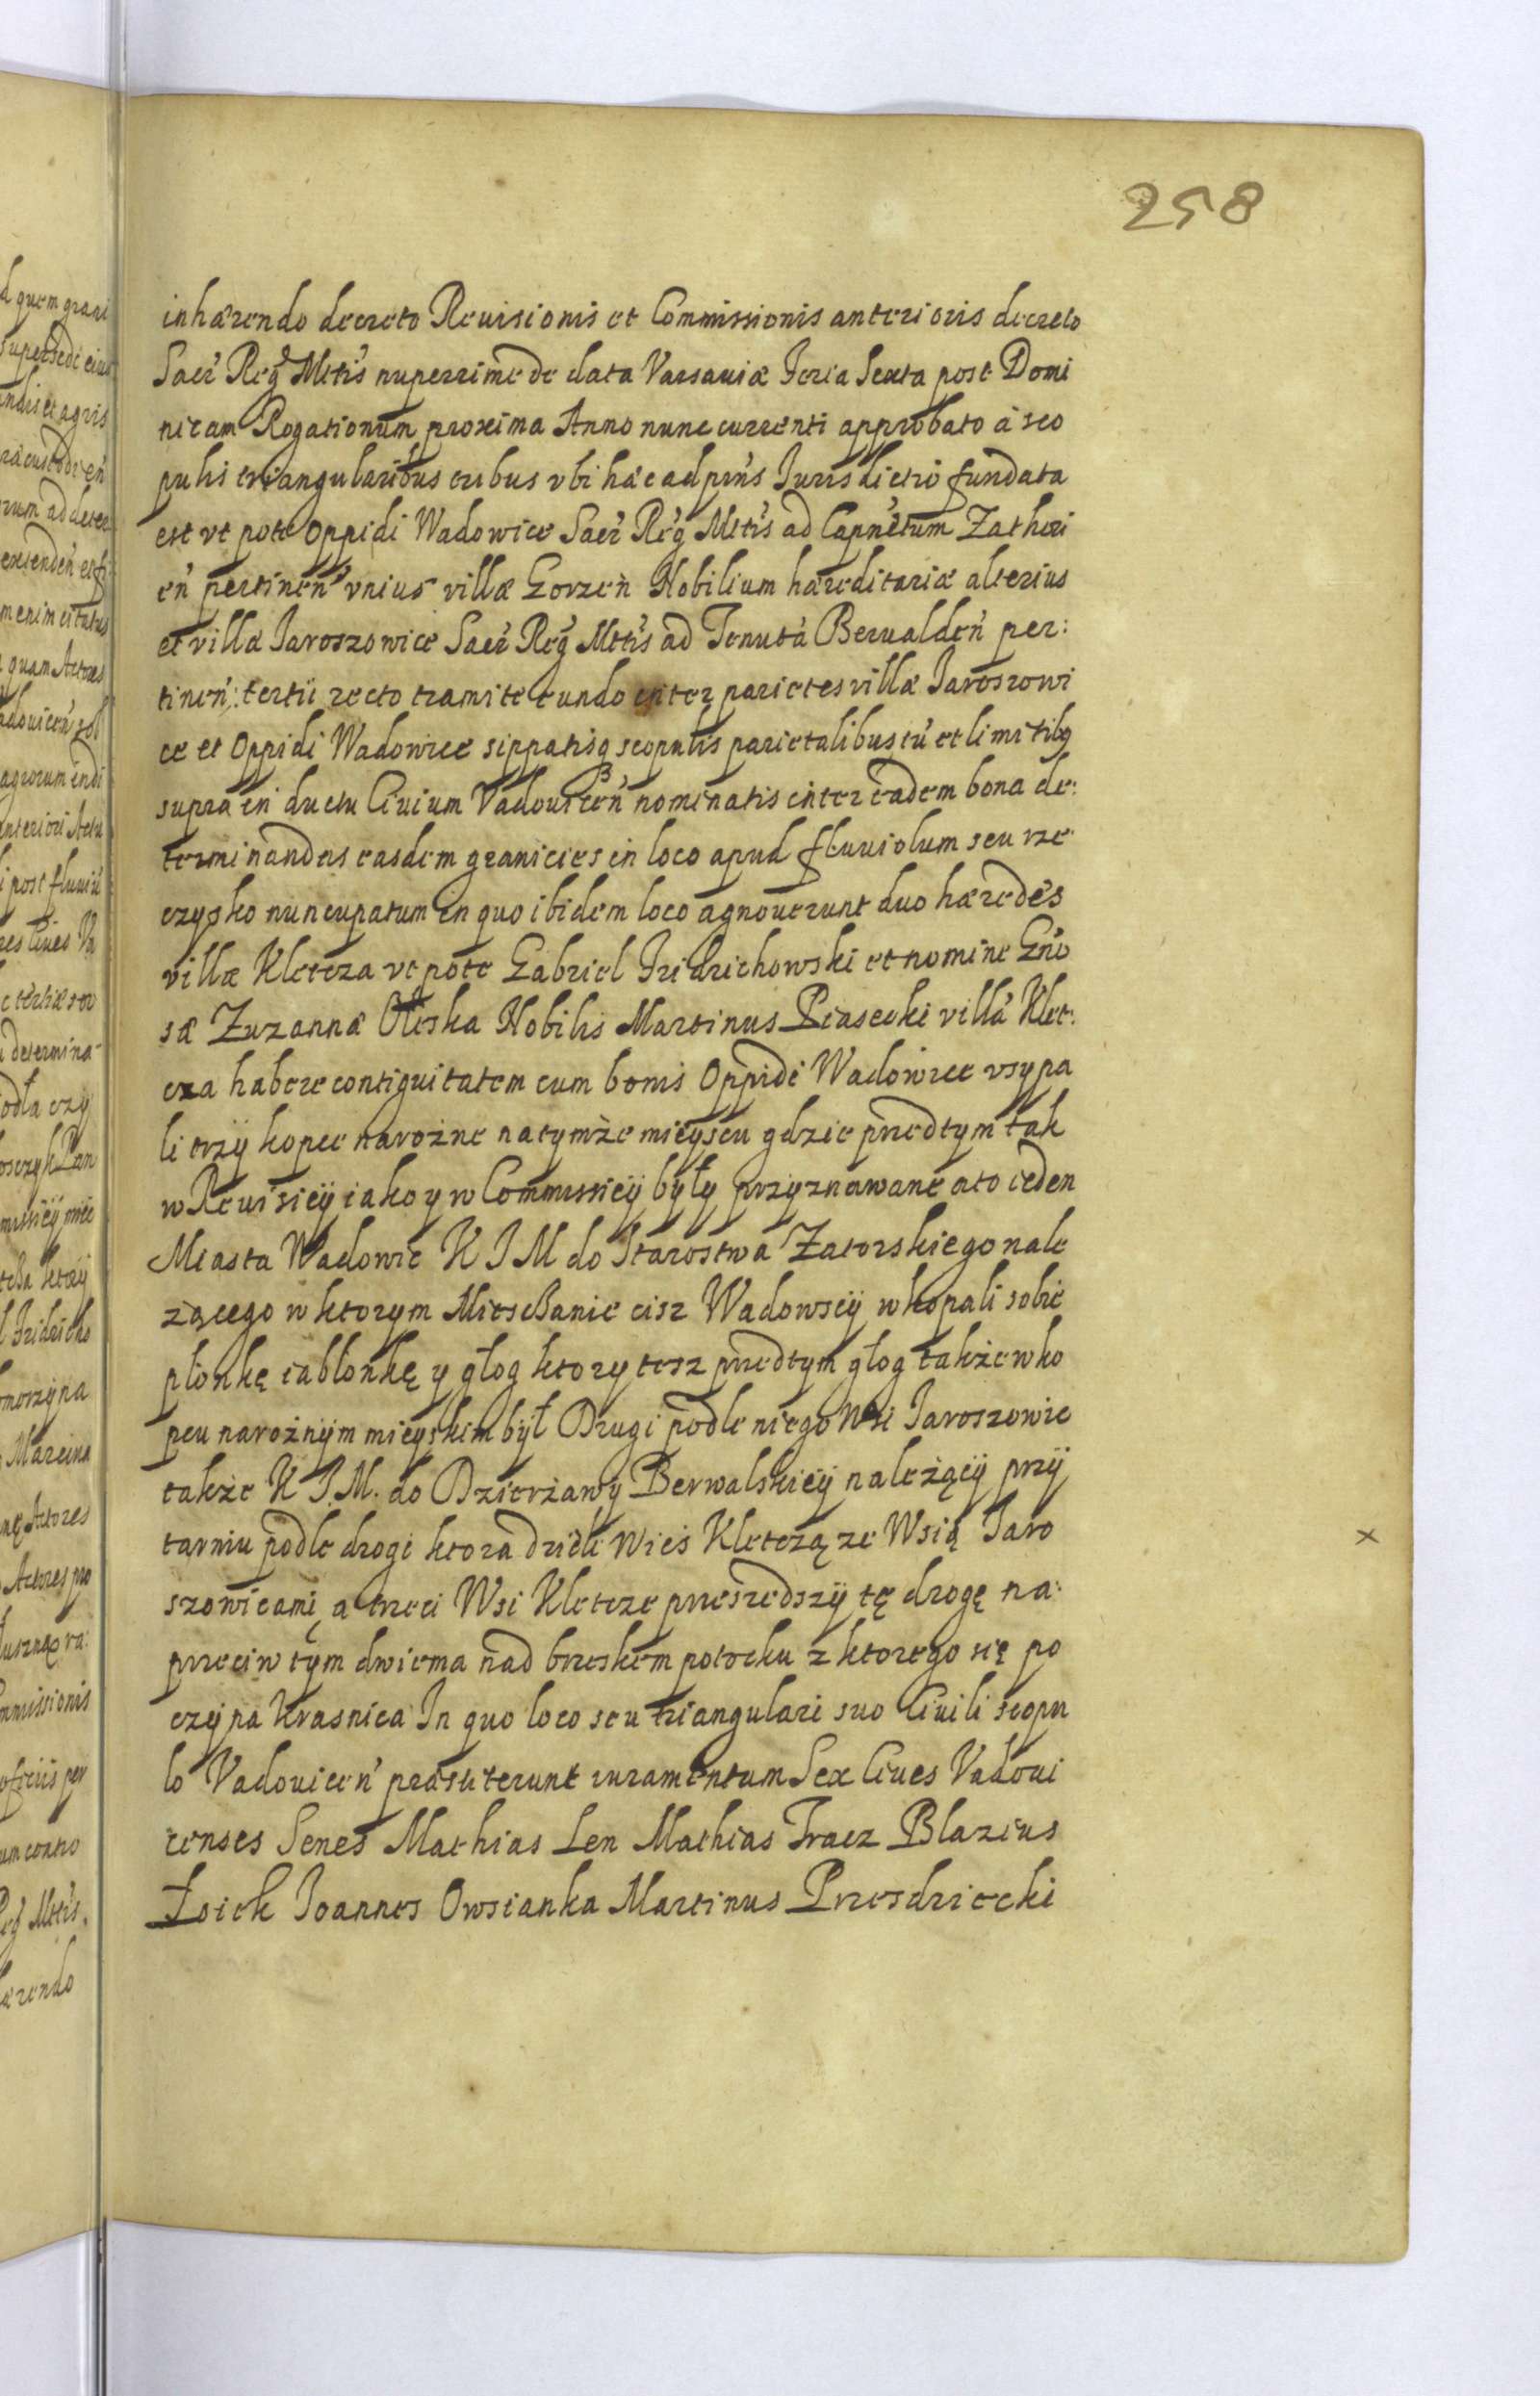 258
inhærendo decreto Revisionis et Commissionis anterioris decreto
Sacr̃ Reg̃ Mttis nuperrime de data Varsaviæ Feria Sexta post Domi
nicam Rogationum proxima Anno nunc currenti approbato à sco
pulis triangularibus tribus vbi hac ad prñs Iurisdictio fundata
est vt pote Oppidi Wadowice Sacr̃ Reg̃ Mttis ad Capnẽtum Zathori
eñ pertineñ vnius villæ Gorzeń Nobilium hæreditariæ alterius
et villæ Jaroszowice Sacr̃ Reg̃ Mttis ad Tenutã Berwaldeñ per:
tineñ: tertij recto tramite eundo inter parietes villæ Jaroszowi
ce et Oppidi Wadowice sippatisq scopulis parietalibus cũ et limitibq
supra in ductu Civium Vadoviceñ nominatis inter eadem bona de:
terminandas easdem granicies in loco apud fluviolum seu rze
czysko nuncupatum in quo ibidem loco agnoverunt duo hæredes
villæ Kletcza vt pote Gabriel Fridrichowski et nomine Gño
sæ Zuzannæ Oleska Nobilis Martinus Piasecki villã Klet:
cza habere contiguitatem cum bonis Oppidi Wadowice vsypa
li trzÿ kopce narożne natymże mieÿscu gdzie przedtym tak
w Revisieÿ iako y w Commissieÿ były przyznawane ato ieden
Miasta Wadowic K J M do Starostwa Zatorskiego nale
zącego w ktorym Miesczanie cisz Wadowscÿ wkopali sobie
płonkę iabłonkę y głog ktory tesz przedtym głog także wko
pcu narożnÿm mieyskim bÿł Drugi podle niego Wsi Jaroszowic
także K J.M. do Dzierżawÿ Berwalskieÿ należąceÿ przÿ
tarniu podle drogi ktora dzieli Wieś Kletczą ze Wsią Jaro
szowicami, a trzeci Wsi Kletcze przeszedszÿ tę drogę na:
przeciw tÿm dwiema nad brzeskem potocku z ktorego się po
czÿna Krasnica In quo loco seu triangulari suo Civili scopu
lo Vadoviceñ præstiterunt iuramentum Sex Cives Vadovi
censes Senes Mathias Len Mathias Tracz Blazius
Łoiek Joannes Owsianka Martinus Przesdziecki